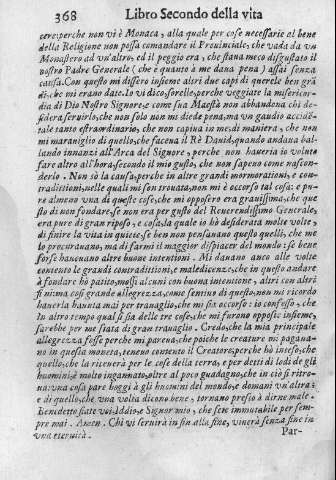 368 Libro Secondo della vita
cere; perche non vi è Monaca, alla quale per cose necessarie al bene
della Religione non possa comandare il Prouinciale, che vada da vn
Monastero ad vn'altro, ed il peggio era, che staua meco disgustato il
nostro Padre Generale (che è quanto à me daua pena) assai senza
causa. Con questo mi dissero insieme altri due capi di querele ben grã
di, che mi erano date. Io vi dico, sorelle, perche veggiate la misericor-
dia di Dio Nostro Signore, e come sua Maestà non abbandona chi de-
sidera seruirlo, che non solo non mi diede pena, ma vn gaudio accidē
tale tanto estraordinario, che non capiua in me; di maniera, che non
mi marauiglio di quello, che faceua il Rè Dauid, quando andaua bal-
lando innanzi all'Arca del Signore, perche non haueria io voluto
fare altro all'hora, secondo il mio gusto, che non sapeuo come nascon-
derlo. Non sò la causa, perche in altre grandi mormorationi, e con-
tradittioni, nelle quali mi son trouata, non mi è occorso tal cosa: e pu-
re almeno vna di queste cose, che mi opposero era grauissima; che que
sto di non fondare, se non era per gusto del Reuerendissimo Generale,
era pure di gran riposo, e cosa, la quale io hò desiderata molte volte,
di finire la vita in quiete, se ben non pensauano questo quelli, che me
lo procurauano, ma di farmi il maggior dispiacer del mondo: se bene
forse haueuano altre buone intentioni. Mi dauano anco alle volte
contento le grandi contradittioni, e maledicenze, che in questo andare
à fondare hò patito, mossi alcuni con buona intentione, altri con altri
fini: ma, così grande allegrezza, come sentiuo di questo, non mi ricordo
hauerla hauuta mai per trauaglio, che me sia occorso: io confesso, che
in altro tempo qual si sia delle tre cose, che mi furono opposte insieme,
sarebbe per me stata di gran trauaglio. Credo, che la mia principale
allegrezza fosse perche mi pareua, che poiche le creature mi pagaua-
no in questa moneta, teneuo contento il Creatore; perche hò inteso, che
quello, che la riceuerà per le cose della terra, e per detti di lodi de gli
huomini, è molto ingannato, oltre al poco guadagno, che in ciò si ritro-
ua: vna cosa pare hoggi à gli huomini del mondo, e domani vn'altra:
e di quello, che vna volta dicono bene, tornano presto à dirne male.
Benedetto siate voi Iddio, e Signor mio, che sete immutabile per sem-
pre mai. Amen. Chi vi seruirà in sin alla fine, viuerà senza fine in
vna eternità.
Par-